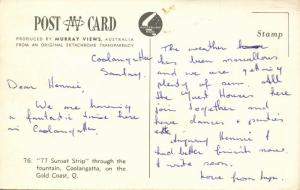 POST CARD
PRODUCED BY MURRAY VIEWS, AUSTRALIA
FROM AN ORIGINAL EKTACHROME TRANSPARENCY
Stamp
Coolangatta
Sunday.
Dear Hennie,
We are having
a fantastic time here
in Coolangatta.
76. "77 Sunset Strip" through the
fountain, Coolangatta, on the
Gold Coast, Q.
The weather
has been marvellous
and we are getting
plenty of sun. All
the Guest Houses here
join together and
have dances + parties
etc.
Anyway Hennie I
had better finish now.
I write soon.
Love from